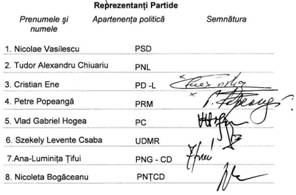 Reprezentanți Partide
Prenumele și numele Apartenența politică Semnătura
1. Nicolae Vasilescu PSD
2. Tudor Alexandru Chiuariu PNL
3. Cristian Ene PD -L
4. Petre Popeangă PRM
5. Vlad Gabriel Hogea PC
6. Szekely Levente Csaba UDMR
7.Ana-Luminița Țifui PNG - CD
8. Nicoleta Bogăceanu PNȚCD